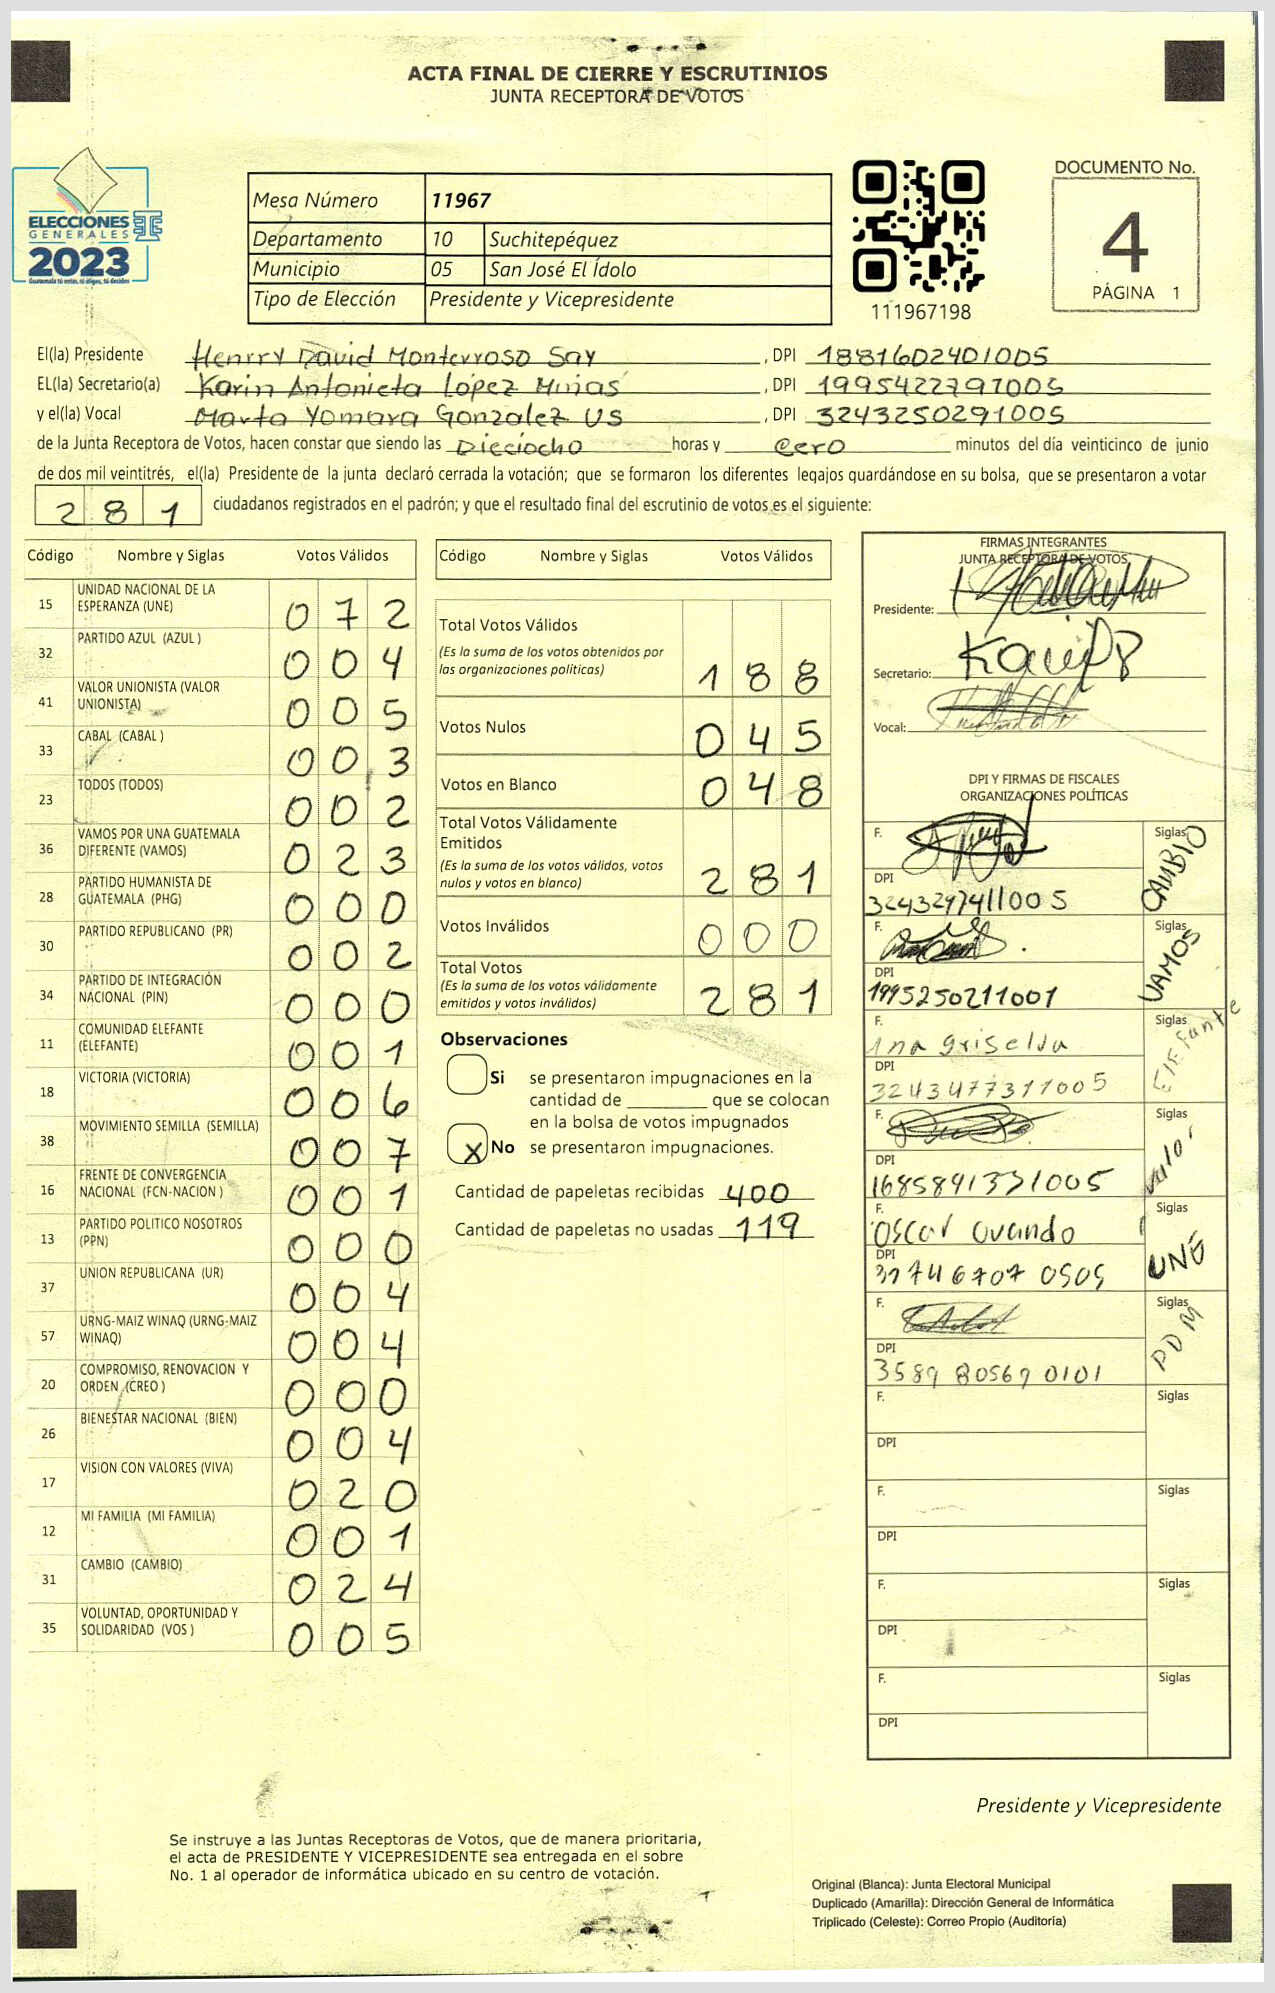 ACTA FINAL DE CIERRE Y ESCRUTINIOS
JUNTA RECEPTORA DE VOTOS
ELECCIONES
GENERALES
2023
Guatemala tú votas, tú eliges, tú decides
Mesa Número 11967
Departamento 10 Suchitepéquez
Municipio 05 San José El Ídolo
Tipo de Elección Presidente y Vicepresidente
111967198
DOCUMENTO No.
4
PÁGINA 1
El(la) Presidente Henrry David Monterroso Say, DPI 1881602401005
EL(la) Secretario(a) Karin Antonieta López, DPI 1995422791005
y el(la) Vocal Marta Yomara Gonzalez US, DPI 3243250291005
de la Junta Receptora de Votos, hacen constar que siendo las Dieciocho horas y cero minutos del día veinticinco de junio
de dos mil veintitrés, el(la) Presidente de la junta declaró cerrada la votación; que se formaron los diferentes legajos guardándose en su bolsa, que se presentaron a votar
281 ciudadanos registrados en el padrón; y que el resultado final del escrutinio de votos es el siguiente:
Código Nombre y Siglas Votos Válidos
15 UNIDAD NACIONAL DE LA ESPERANZA (UNE) 072
32 PARTIDO AZUL (AZUL ) 004
41 VALOR UNIONISTA (VALOR UNIONISTA) 005
33 CABAL (CABAL ) 003
23 TODOS (TODOS) 002
36 VAMOS POR UNA GUATEMALA DIFERENTE (VAMOS) 023
28 PARTIDO HUMANISTA DE GUATEMALA (PHG) 000
30 PARTIDO REPUBLICANO (PR) 002
34 PARTIDO DE INTEGRACIÓN NACIONAL (PIN) 000
11 COMUNIDAD ELEFANTE (ELEFANTE) 001
18 VICTORIA (VICTORIA) 006
38 MOVIMIENTO SEMILLA (SEMILLA) 007
16 FRENTE DE CONVERGENCIA NACIONAL (FCN-NACION ) 001
13 PARTIDO POLITICO NOSOTROS (PPN) 000
37 UNION REPUBLICANA (UR) 004
57 URNG-MAIZ WINAQ (URNG-MAIZ WINAQ) 004
20 COMPROMISO, RENOVACION Y ORDEN (CREO ) 000
26 BIENESTAR NACIONAL (BIEN) 004
17 VISION CON VALORES (VIVA) 020
12 MI FAMILIA (MI FAMILIA) 001
31 CAMBIO (CAMBIO) 024
35 VOLUNTAD, OPORTUNIDAD Y SOLIDARIDAD (VOS ) 005
Código Nombre y Siglas Votos Válidos
Total Votos Válidos 188
(Es la suma de los votos obtenidos por
las organizaciones políticas)
Votos Nulos 045
Votos en Blanco 048
Total Votos Válidamente
Emitidos 281
(Es la suma de los votos válidos, votos
nulos y votos en blanco)
Votos Inválidos 000
Total Votos 281
(Es la suma de los votos válidamente
emitidos y votos inválidos)
Observaciones
Si se presentaron impugnaciones en la
cantidad de ________ que se colocan
en la bolsa de votos impugnados
X No se presentaron impugnaciones.
Cantidad de papeletas recibidas 400
Cantidad de papeletas no usadas 119
FIRMAS INTEGRANTES
JUNTA RECEPTORA DE VOTOS
Presidente:
Secretario:
Vocal:
DPI Y FIRMAS DE FISCALES
ORGANIZACIONES POLÍTICAS
F. Siglas CAMBIO
DPI 3243297411005
F. Siglas VAMOS
DPI 1995250211001
F. Ana griselda Siglas Elefante
DPI 3243477311005
F. Siglas Valor
DPI 1685891331005
F. Oscar Ovando Siglas UNE
DPI 31746707 0505
F. Siglas PDM
DPI 3589 80567 0101
F. Siglas
DPI
F. Siglas
DPI
F. Siglas
DPI
F. Siglas
DPI
Presidente y Vicepresidente
Se instruye a las Juntas Receptoras de Votos, que de manera prioritaria,
el acta de PRESIDENTE Y VICEPRESIDENTE sea entregada en el sobre
No. 1 al operador de informática ubicado en su centro de votación.
Original (Blanca): Junta Electoral Municipal
Duplicado (Amarilla): Dirección General de Informática
Triplicado (Celeste): Correo Propio (Auditoría)